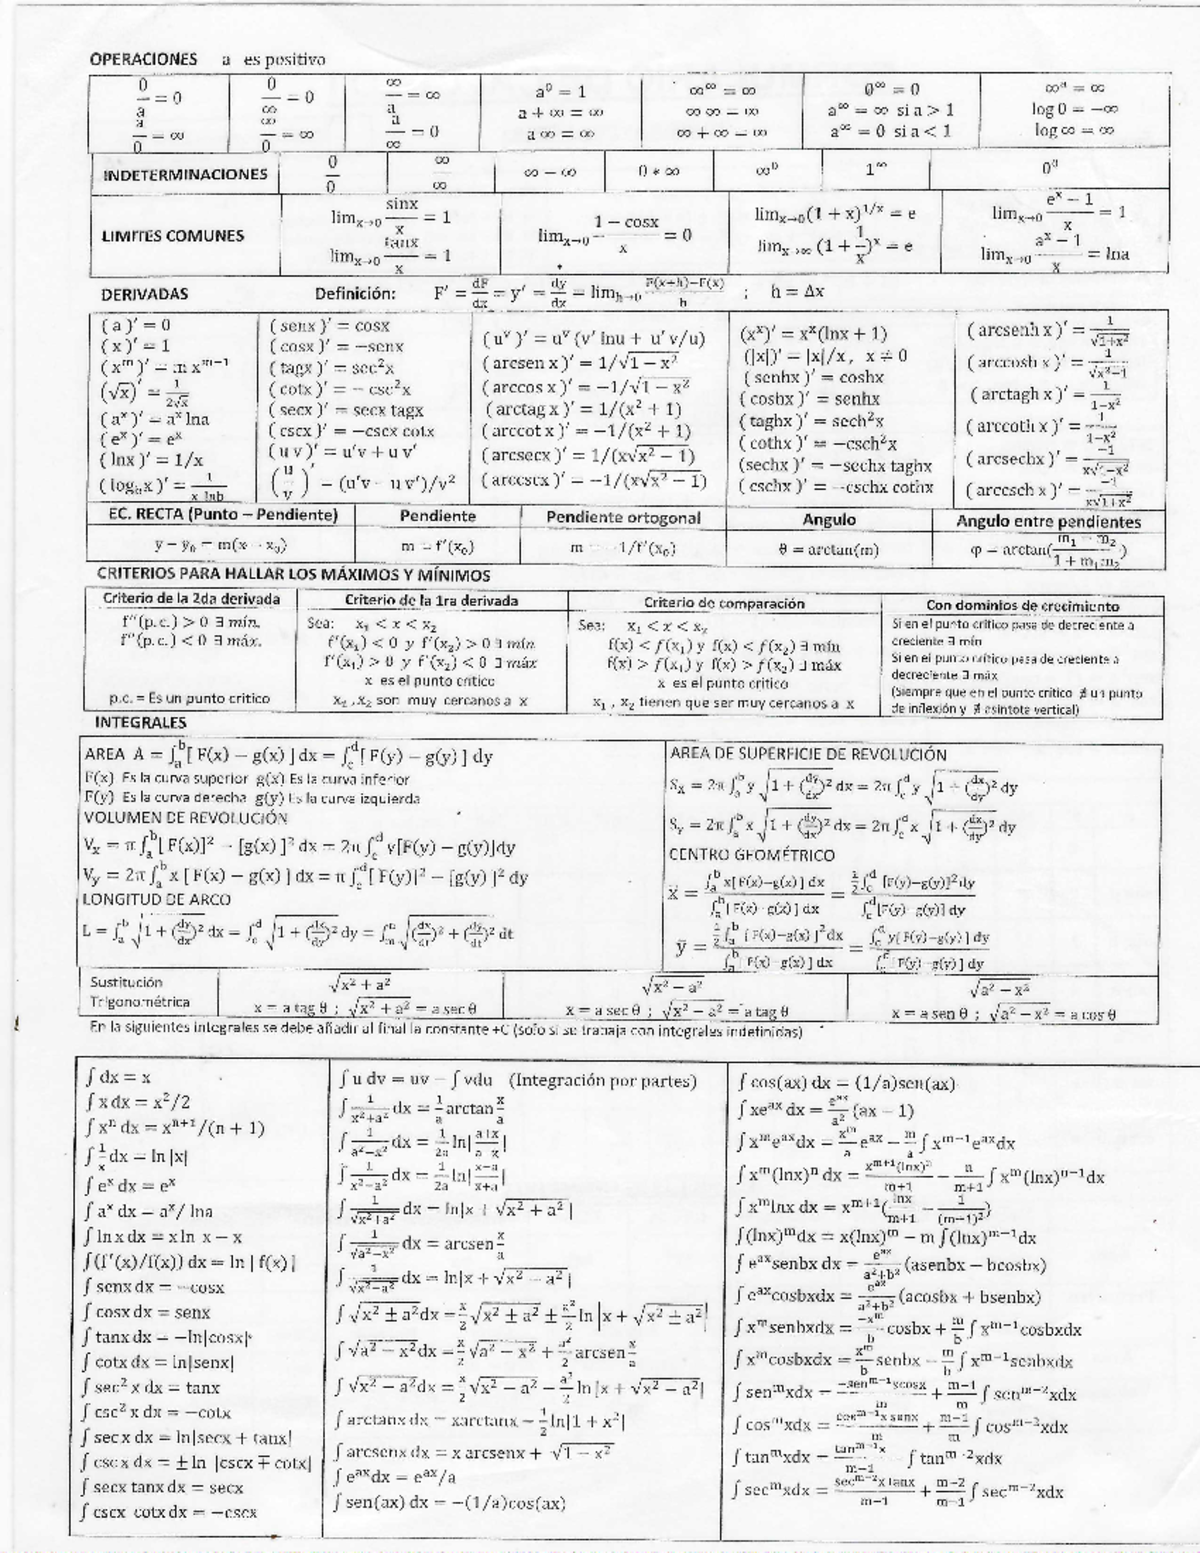 OPERACIONES a es positivo
0/a = 0
a/0 = ∞
0/∞ = 0
∞/0 = ∞
∞/a = ∞
a/∞ = 0
a⁰ = 1
a + ∞ = ∞
a ∞ = ∞
∞^∞ = ∞
∞ ∞ = ∞
∞ + ∞ = ∞
0^∞ = 0
a^∞ = ∞ si a > 1
a^∞ = 0 si a < 1
∞^a = ∞
log 0 = −∞
log ∞ = ∞
INDETERMINACIONES 0/0 ∞/∞ ∞ − ∞ 0 * ∞ ∞⁰ 1^∞ 0⁰
LIMITES COMUNES
lim x→0 sinx/x = 1
lim x→0 tanx/x = 1
lim x→0 (1 − cosx)/x = 0
lim x→0 (1 + x)^1/x = e
lim x→∞ (1 + 1/x)^x = e
lim x→0 (e^x − 1)/x = 1
lim x→0 (a^x − 1)/x = lna
DERIVADAS Definición: F′ = dF/dx = y′ = dy/dx = lim h→0 (F(x+h)−F(x))/h ; h = Δx
( a )′ = 0
( x )′ = 1
( x^m )′ = m x^m−1
(√x)′ = 1/2√x
( a^x )′ = a^x lna
( e^x )′ = e^x
( lnx )′ = 1/x
( log_b x )′ = 1/(x lnb)
( senx )′ = cosx
( cosx )′ = −senx
( tagx )′ = sec²x
( cotx )′ = − csc²x
( secx )′ = secx tagx
( cscx )′ = −cscx cotx
( u v )′ = u′v + u v′
(u/v)′ = (u′v − u v′)/v²
( u^v )′ = u^v (v′ lnu + u′ v/u)
( arcsen x )′ = 1/√1 − x²
( arccos x )′ = −1/√1 − x²
( arctag x )′ = 1/(x² + 1)
( arccot x )′ = −1/(x² + 1)
( arcsecx )′ = 1/(x√x² − 1)
( arccscx )′ = −1/(x√x² − 1)
(x^x)′ = x^x(lnx + 1)
(|x|)′ = |x|/x , x ≠ 0
( senhx )′ = coshx
( coshx )′ = senhx
( taghx )′ = sech²x
( cothx )′ = −csch²x
(sechx )′ = −sechx taghx
( cschx )′ = −cschx cothx
( arcsenh x )′ = 1/√1+x²
( arccosh x )′ = 1/√x²−1
( arctagh x )′ = 1/1−x²
( arccoth x )′ = 1/1−x²
( arcsechx )′ = −1/x√1−x²
( arccsch x )′ = −1/x√1+x²
EC. RECTA (Punto – Pendiente) Pendiente Pendiente ortogonal Angulo Angulo entre pendientes
y − y₀ = m(x − x₀) m = f′(x₀) m = −1/f′(x₀) θ = arctan(m) φ = arctan((m₁ − m₂)/(1 + m₁m₂))
CRITERIOS PARA HALLAR LOS MÁXIMOS Y MÍNIMOS
Criterio de la 2da derivada
f′′(p.c.) > 0 ∃ mín.
f′′(p.c.) < 0 ∃ máx.
p.c. = Es un punto critico
Criterio de la 1ra derivada
Sea: x₁ < x < x₂
f′(x₁) < 0 y f′(x₂) > 0 ∃ mín
f′(x₁) > 0 y f′(x₂) < 0 ∃ máx
x es el punto critico
x₁ , x₂ son muy cercanos a x
Criterio de comparación
Sea: x₁ < x < x₂
f(x) < f(x₁) y f(x) < f(x₂) ∃ mín
f(x) > f(x₁) y f(x) > f(x₂) ∃ máx
x es el punto critico
x₁ , x₂ tienen que ser muy cercanos a x
Con dominios de crecimiento
Si en el punto critico pasa de decreciente a
creciente ∃ mín
Si en el punto critico pasa de creciente a
decreciente ∃ máx
(Siempre que en el punto critico ∄ un punto
de inflexión y ∄ asintota vertical)
INTEGRALES
AREA A = ∫ₐᵇ[ F(x) − g(x) ] dx = ∫꜀ᵈ[ F(y) − g(y) ] dy
F(x) Es la curva superior g(x) Es la curva inferior
F(y) Es la curva derecha g(y) Es la curva izquierda
VOLUMEN DE REVOLUCIÓN
Vx = π ∫ₐᵇ[ F(x)]² − [g(x) ]² dx = 2π ∫꜀ᵈ y[F(y) − g(y)]dy
Vy = 2π ∫ₐᵇ x [ F(x) − g(x) ] dx = π ∫꜀ᵈ[ F(y)]² − [g(y) ]² dy
LONGITUD DE ARCO
L = ∫ₐᵇ √1 + (dy/dx)² dx = ∫꜀ᵈ √1 + (dx/dy)² dy = ∫ √(dx/dt)² + (dy/dt)² dt
AREA DE SUPERFICIE DE REVOLUCIÓN
Sx = 2π ∫ₐᵇ y √1 + (dy/dx)² dx = 2π ∫꜀ᵈ y √1 + (dx/dy)² dy
Sy = 2π ∫ₐᵇ x √1 + (dy/dx)² dx = 2π ∫꜀ᵈ x √1 + (dx/dy)² dy
CENTRO GEOMÉTRICO
x̄ = ∫ₐᵇ x[F(x)−g(x)] dx / ∫ₐᵇ[F(x)−g(x)] dx = ½∫꜀ᵈ [F(y)−g(y)]²dy / ∫꜀ᵈ[F(y)−g(y)] dy
ȳ = ½∫ₐᵇ [F(x)−g(x)]²dx / ∫ₐᵇ[F(x)−g(x)] dx = ∫꜀ᵈ y[F(y)−g(y)] dy / ∫꜀ᵈ[F(y)−g(y)] dy
Sustitución
Trigonométrica
√x² + a²
x = a tag θ ; √x² + a² = a sec θ
√x² − a²
x = a sec θ ; √x² − a² = a tag θ
√a² − x²
x = a sen θ ; √a² − x² = a cos θ
En la siguientes integrales se debe añadir al final la constante +C (solo si se trabaja con integrales indefinidas)
∫ dx = x
∫ x dx = x²/2
∫ xⁿ dx = xⁿ⁺¹/(n + 1)
∫ 1/x dx = ln |x|
∫ e^x dx = e^x
∫ a^x dx = a^x/ lna
∫ ln x dx = x ln x − x
∫(f′(x)/f(x)) dx = ln | f(x) |
∫ senx dx = −cosx
∫ cosx dx = senx
∫ tanx dx = −ln|cosx|
∫ cotx dx = ln|senx|
∫ sec² x dx = tanx
∫ csc² x dx = −cotx
∫ sec x dx = ln|secx + tanx|
∫ csc x dx = ± ln |cscx ∓ cotx|
∫ secx tanx dx = secx
∫ cscx cotx dx = −cscx
∫ u dv = uv − ∫ vdu (Integración por partes)
∫ 1/(x²+a²) dx = 1/a arctan x/a
∫ 1/(a²−x²) dx = 1/2a ln|(a+x)/(a−x)|
∫ 1/(x²−a²) dx = 1/2a ln|(x−a)/(x+a)|
∫ 1/√x²+a² dx = ln|x + √x² + a² |
∫ 1/√a²−x² dx = arcsen x/a
∫ 1/√x²−a² dx = ln|x + √x² − a² |
∫ √x² ± a² dx = x/2 √x² ± a² ± a²/2 ln |x + √x² ± a²|
∫ √a² − x² dx = x/2 √a² − x² + a²/2 arcsen x/a
∫ √x² − a² dx = x/2 √x² − a² − a²/2 ln |x + √x² − a²|
∫ arctanx dx = xarctanx − 1/2 ln|1 + x²|
∫ arcsenx dx = x arcsenx + √1 − x²
∫ e^ax dx = e^ax/a
∫ sen(ax) dx = −(1/a)cos(ax)
∫ cos(ax) dx = (1/a)sen(ax)
∫ xe^ax dx = e^ax/a² (ax − 1)
∫ x^m e^ax dx = x^m/a e^ax − m/a ∫ x^m−1 e^ax dx
∫ x^m(lnx)ⁿ dx = x^m+1(lnx)ⁿ/(m+1) − n/(m+1) ∫ x^m(lnx)ⁿ⁻¹dx
∫ x^m lnx dx = x^m+1( lnx/(m+1) − 1/(m+1)² )
∫(lnx)^m dx = x(lnx)^m − m ∫(lnx)^m−1 dx
∫ e^ax senbx dx = e^ax/(a²+b²) (asenbx − bcosbx)
∫ e^ax cosbxdx = e^ax/(a²+b²) (acosbx + bsenbx)
∫ x^m senbxdx = −x^m/b cosbx + m/b ∫ x^m−1 cosbxdx
∫ x^m cosbxdx = x^m/b senbx − m/b ∫ x^m−1 senbxdx
∫ sen^m xdx = −sen^m−1 xcosx/m + (m−1)/m ∫ sen^m−2 xdx
∫ cos^m xdx = cos^m−1 x senx/m + (m−1)/m ∫ cos^m−2 xdx
∫ tan^m xdx = tan^m−1 x/(m−1) − ∫ tan^m−2 xdx
∫ sec^m xdx = sec^m−2 x tanx/(m−1) + (m−2)/(m−1) ∫ sec^m−2 xdx